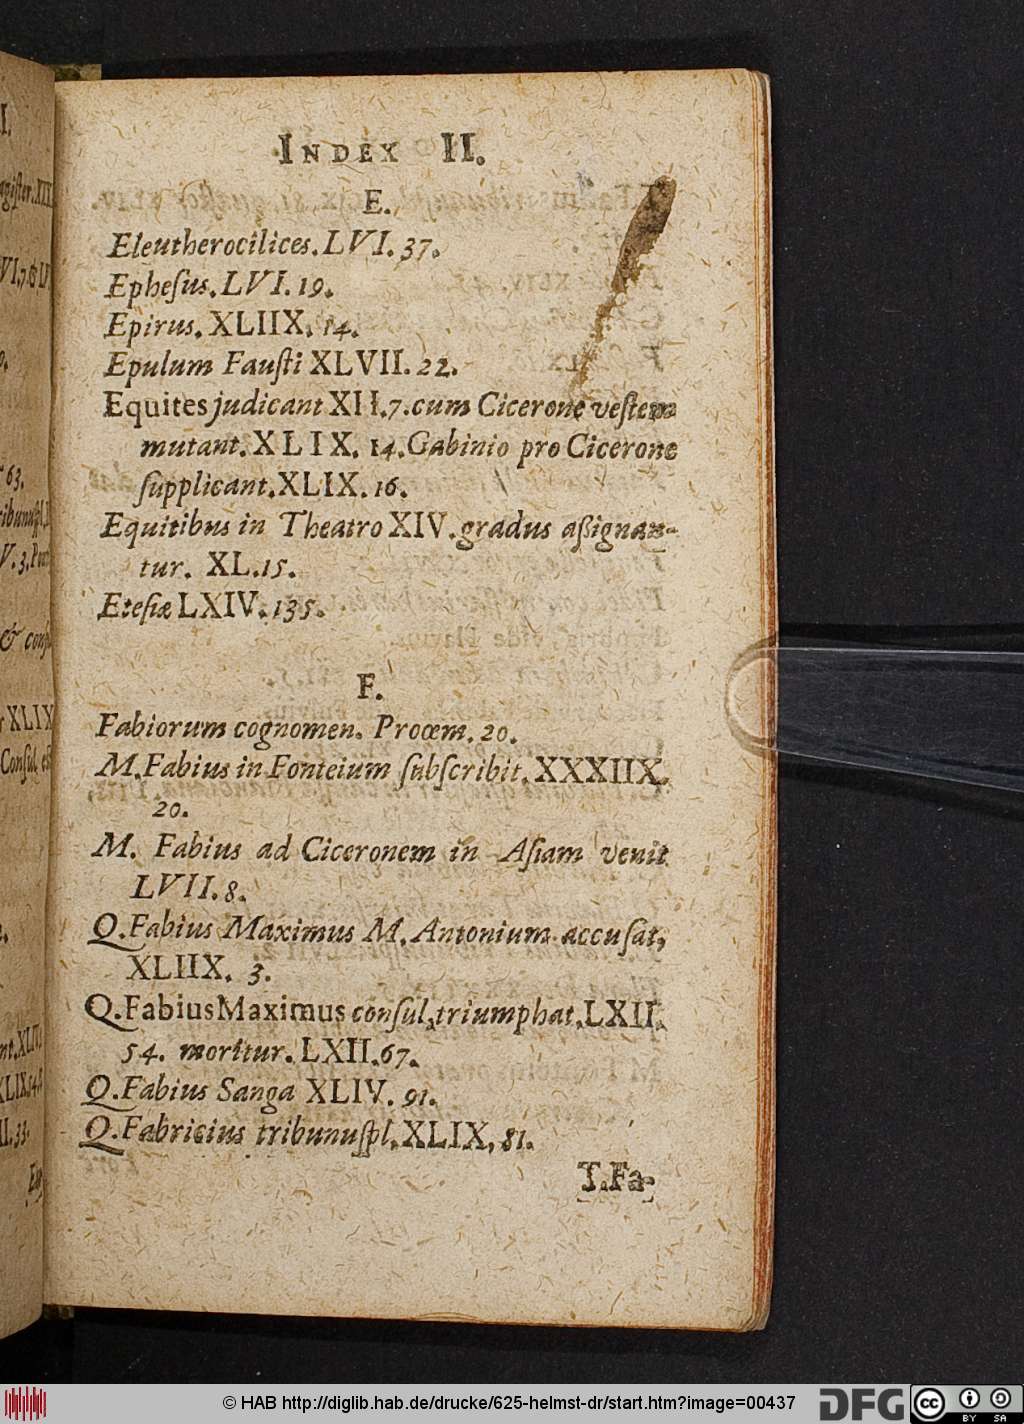 INDEX II.
E.
Eleutherocilices. LVI. 37.
Epheſus. LVI. 19.
Epirus. XLIIX. 14.
Epulum Fauſti XLVII. 22.
Equites judicant XII. 7. cum Cicerone veſtem
mutant. XLIX. 14. Gabinio pro Cicerone
ſupplicant. XLIX. 16.
Equitibus in Theatro XIV. gradus aßignan-
tur. XL. 15.
Eteſiæ LXIV. 135.
F.
Fabiorum cognomen. Proœm. 20.
M. Fabius in Fonteium ſubſcribit. XXXIIX.
20.
M. Fabius ad Ciceronem in Aſiam venit
LVII. 8.
Q. Fabius Maximus M. Antonium accuſat,
XLIIX. 3.
Q. Fabius Maximus conſul, triumphat, LXII.
54. moritur. LXII. 67.
Q. Fabius Sanga XLIV. 91.
Q. Fabricius tribunuſpl. XLIX, 81.
T. Fa-
© HAB http://diglib.hab.de/drucke/625-helmst-dr/start.htm?image=00437
DFG
cc
BY SA